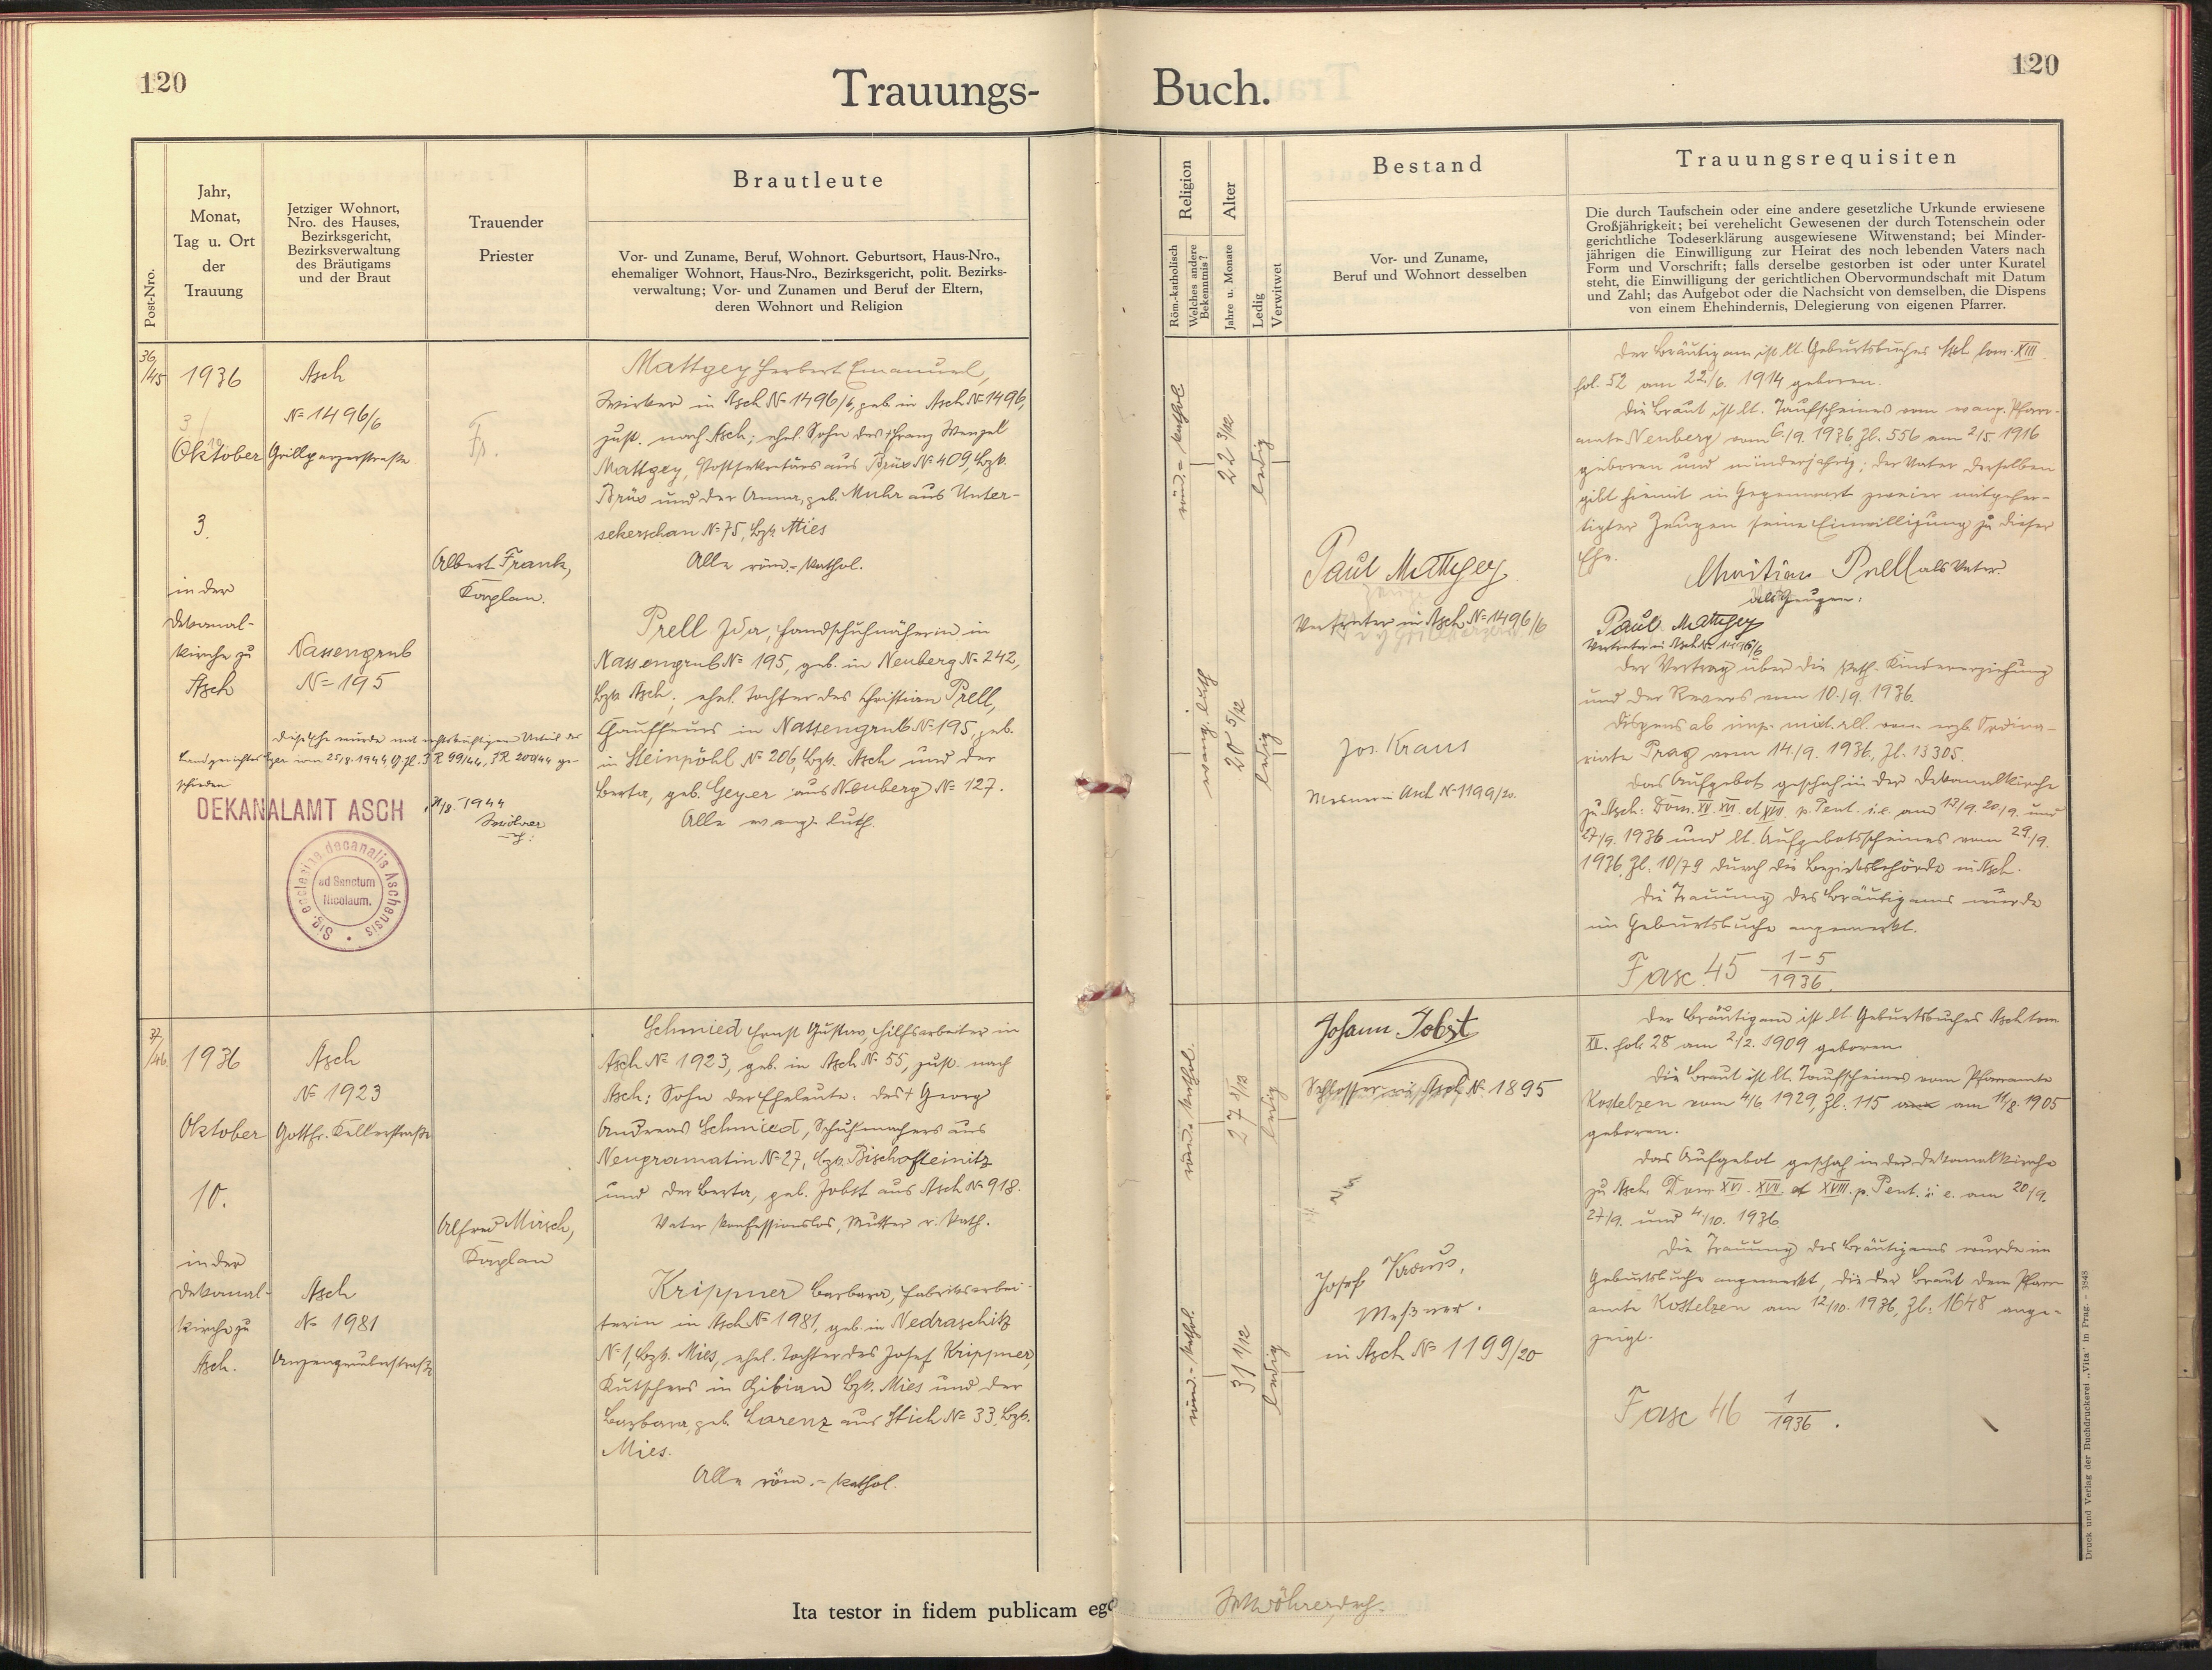 120
Trauungs-
Jahr,
Monat,
Tag u. Ort
der
Trauung
Post-Nro.
Jetziger Wohnort,
Nro. des Hauses,
Bezirksgericht,
Bezirksverwaltung
des Bräutigams
und der Braut
Trauender
Priester
Brautleute
Vor- und Zuname, Beruf, Wohnort. Geburtsort, Haus-Nro.,
ehemaliger Wohnort, Haus-Nro., Bezirksgericht, polit. Bezirks-
verwaltung; Vor- und Zunamen und Beruf der Eltern,
deren Wohnort und Religion
36/45
1936
Oktober
3.
in der
Dekanal-
kirche zu
Asch
Asch
№ 1496/6
Grillparzerstraße
Nassengrub
№ 195
Fr.
Albert Frank,
Kaplan.
Mattgey Herbert Emanuel,
Wirker in Asch № 1496/6, geb. in Asch № 1496,
zust. nach Asch; ehel. Sohn des † Franz Wenzel
Mattgey, Postsekretärs aus Brüx № 409, Bzk.
Brüx und der Anna, geb. Muhr aus Unter-
sekerschan № 75, Bzk. Mies
Alle röm.-kathol.
Prell Ida, Handschuhnäherin in
Nassengrub № 195, geb. in Neuberg № 242,
Bzk. Asch; ehel. Tochter des Christian Prell,
Chauffeurs in Nassengrub № 195, geb.
in Steinpöhl № 206, Bzk. Asch und der
Berta, geb. Geyer aus Neuberg № 127.
Alle evang. luth.
Diese Ehe wurde mit rechtskräftigem Urteil des
Landgerichtes Eger vom 25/7. 1944, G. Zl. 3 R 99/44, 3 R 200/44 ge-
schieden
DEKANALAMT ASCH
/8. 1944
Sig. ecclesiae decanalis Aschensis
ad Sanctum
Nicolaum.
37/46.
1936
Oktober
10.
in der
Dekanal-
kirche zu
Asch.
Asch
№ 1923
Gottfr. Kellerstraße
Asch
№ 1981
Anzengruberstraße
Alfred Mirsch,
Kaplan
Schmied Ernst Gustav, Hilfsarbeiter in
Asch № 1923, geb. in Asch № 55, zust. nach
Asch; Sohn der Eheleute: des † Georg
Andreas Schmied, Schuhmachers aus
Neugramatin № 27, Bzk. Bischofteinitz
und der Berta, geb. Jobst aus Asch № 918.
Vater konfessionslos, Mutter r. kath.
Krippner Barbara, Fabriksarbei-
terin in Asch № 1981, geb. in Nedraschitz
№ 1, Bzk. Mies, ehel. Tochter des Josef Krippner,
Kutschers in Gibian Bzk. Mies und der
Barbara, geb. Lorenz aus Stich № 33, Bzk.
Mies.
Alle röm.-kathol.
Ita testor in fidem publicam ego
120
Buch.
Religion
Röm.-katholisch
Welches andere
Bekenntnis?
Alter
Jahre u. Monate
Ledig
Verwitwet
Bestand
Vor- und Zuname,
Beruf und Wohnort desselben
Trauungsrequisiten
Die durch Taufschein oder eine andere gesetzliche Urkunde erwiesene
Großjährigkeit; bei verehelicht Gewesenen der durch Totenschein oder
gerichtliche Todeserklärung ausgewiesene Witwenstand; bei Minder-
jährigen die Einwilligung zur Heirat des noch lebenden Vaters nach
Form und Vorschrift; falls derselbe gestorben ist oder unter Kuratel
steht, die Einwilligung der gerichtlichen Obervormundschaft mit Datum
und Zahl; das Aufgebot oder die Nachsicht von demselben, die Dispens
von einem Ehehindernis, Delegierung von eigenen Pfarrer.
röm.-kathol
22 3/12
ledig
evang. luth
20 5/12
ledig
Paul Mattgey
Vertreter in Asch № 1496/6
Jos. Kraus
Mesner in Asch № 1199/20.
Der Bräutigam ist lt. Geburtsbuches Asch tom. XIII
fol. 52 am 22/6. 1914 geboren.
Die Braut ist lt. Taufscheines vom evang. Pfarr-
amte Neuberg vom 6./9. 1936, Zl. 556 am 2/5. 1916
geboren und minderjährig; der Vater derselben
gibt hiemit in Gegenwart zweier mitgefer-
tigter Zeugen seine Einwilligung zu dieser
Ehe.
Christian Prell als Vater.
als Zeugen:
Paul Mattgey
Vertreter in Asch № 1496/6
Der Vertrag über die kath. Kindererziehung
und der Revers vom 10./9. 1936.
Dispens ab imp. mixt. rel. vom erzb. Ordina-
riate Prag vom 14/9. 1936, Zl. 13305.
Das Aufgebot geschah in der Dekanalkirche
zu Asch: Dom. XV. XVI. et XVII. p. Pent. i. e. am 13/9. 20/9. und
27/9. 1936 und lt. Aufgebotsscheines vom 29./9.
1936, Zl. 10/79 durch die Bezirksbehörde in Asch.
Die Trauung des Bräutigams wurde
im Geburtsbuche angemerkt.
Fasc. 45 1-5/1936.
röm.-kathol.
27 8/12
ledig
röm.-kathol.
31 1/12
ledig
Johann Jobst
Schlosser in Asch № 1895
Josef Kraus,
Meßner.
in Asch № 1199/20
Der Bräutigam ist lt. Geburtsbuches Asch tom
XII. fol. 28 am 2/2. 1909 geboren.
Die Braut ist lt. Taufscheines vom Pfarramte
Kostelzen vom 4/6. 1929, Zl. 115 am 11/8. 1905
geboren.
Das Aufgebot geschah in der Dekanalkirche
zu Asch, Dom. XVI. XVII. et XVIII. p. Pent. i. e. am 20/9.
27/9. und 4./10. 1936.
Die Trauung des Bräutigams wurde im
Geburtsbuche angemerkt, die der Braut dem Pfarr-
amte Kostelzen am 12/10. 1936, Zl. 1648 ange-
zeigt.
Fasc 46 1/1936.
Druck und Verlag der Buchdruckerei „Vita" in Prag. - 3848